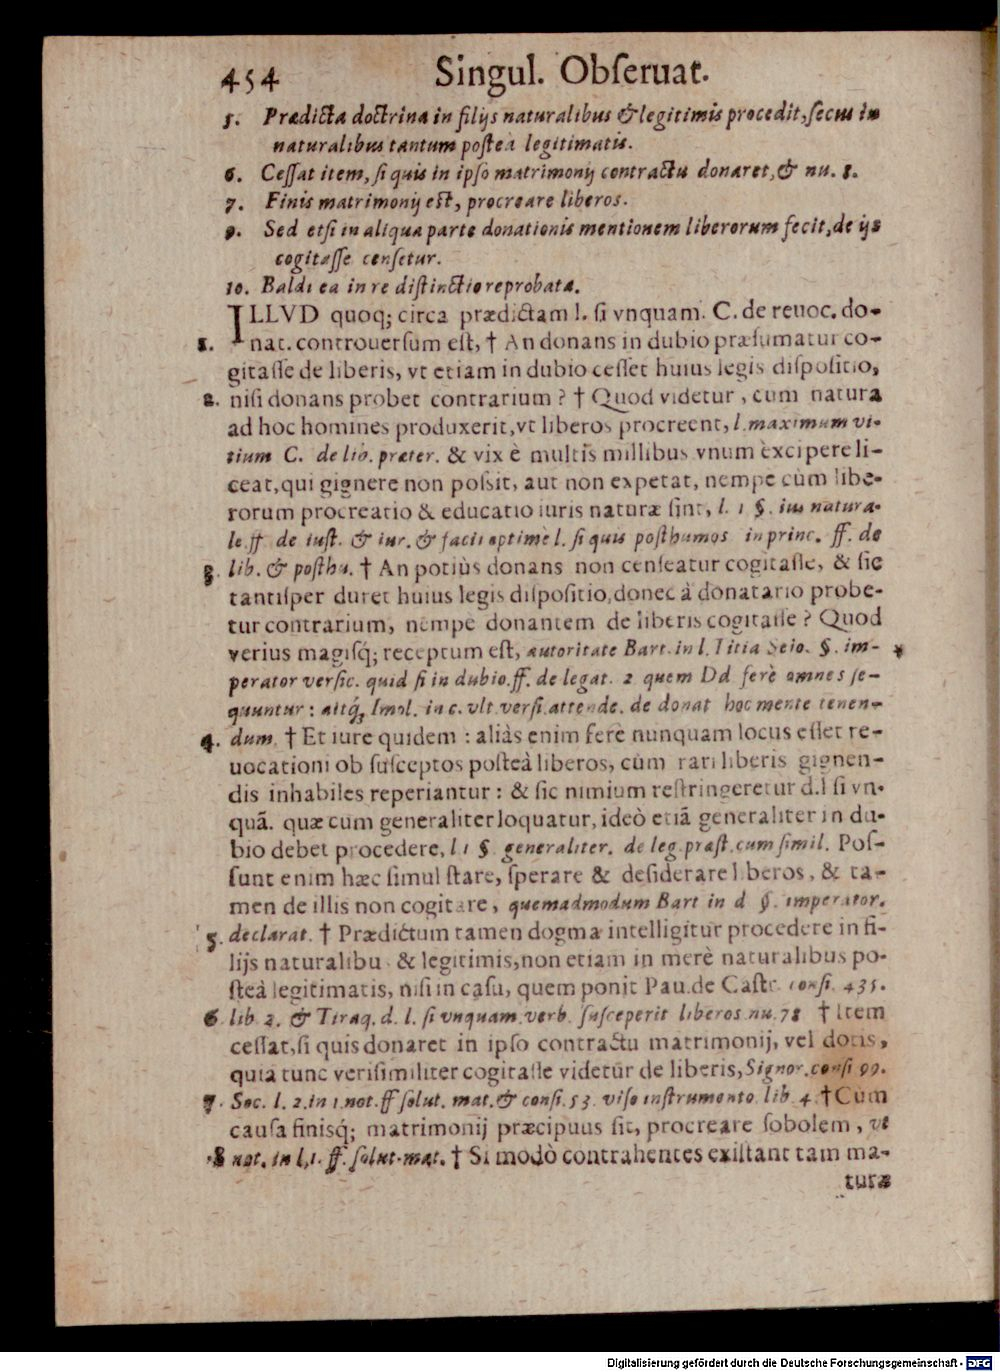 454 Singul. Obſeruat.
5. Prædicta doctrina in filijs naturalibus & legitimis procedit, ſecus in
naturalibus tantum poſteà legitimatis.
6. Ceſſat item, ſi quis in ipſo matrimonij contractu donaret, & nu. 8.
7. Finis matrimonij eſt, procreare liberos.
9. Sed etſi in aliqua parte donationis mentionem liberorum fecit, de ijs
cogitaſſe cenſetur.
10. Baldi ea in re diſtinctio reprobata.
ILLVD quoq; circa prædictam l. ſi vnquam. C. de reuoc. do-
1. nat. controuerſum eſt, † An donans in dubio præſumatur co-
gitaſſe de liberis, vt etiam in dubio ceſſet huius legis diſpoſitio,
2. niſi donans probet contrarium? † Quod videtur, cum natura
ad hoc homines produxerit, vt liberos procreent, l. maximum vi-
tium C. de lib. præter. & vix è multis millibus vnum èxcipere li-
ceat, qui gignere non poſsit, aut non expetat, nempe cùm libe-
rorum procreatio & educatio iuris naturæ ſint, l. 1 §. ius natura-
le. ff de iuſt. & iur. & facit optimè l. ſi quis poſthumos in princ. ff. de
3. lib. & poſthu. † An potiùs donans non cenſeatur cogitaſſe, & ſic
tantiſper duret huius legis diſpoſitio, donec à donatario probe-
tur contrarium, nempe donantem de liberis cogitaſſe? Quod
verius magiſq́; receptum eſt, autoritate Bart. in l. Titia Seio. §. im- *
perator verſic. quid ſi in dubio. ff. de legat. 2 quem Dd ferè omnes ſe-
quuntur: aitq́; Imol. in c. vlt. verſi. attende. de donat hoc mente tenen-
4. dum. † Et iure quidem: aliàs enim ferè nunquam locus eſſet re-
uocationi ob ſuſceptos poſteà liberos, cùm rari liberis gignen-
dis inhabiles reperiantur: & ſic nimium reſtringeretur d. l ſi vn-
quã. quæ cum generaliter loquatur, ideò etiã generaliter in du-
bio debet procedere, l 1 §. generaliter. de leg. præſt. cum ſimil. Poſ-
ſunt enim hæc ſimul ſtare, ſperare & deſiderare liberos, & ta-
men de illis non cogitare, quemadmodum Bart in d §. imperator.
5. declarat. † Prædictum tamen dogma intelligitur procedere in fi-
lijs naturalibu & legitimis, non etiam in merè naturalibus po-
ſteà legitimatis, niſi in caſu, quem ponit Pau. de Caſtr. conſi. 435.
6. lib. 2. & Tiraq. d. l. ſi vnquam. verb. ſuſceperit liberos nu. 78 † Item
ceſſat, ſi quis donaret in ipſo contractu matrimonij, vel dotis,
quia tunc veriſimiliter cogitaſſe videtur de liberis, Signor. conſi 99.
7. Soc. l. 2. in 1. not. ff ſolut. mat. & conſi. 53. viſo inſtrumento lib. 4. † Cùm
cauſa finisq́; matrimonij præcipuus ſit, procreare ſobolem, vt
8 not. in l. 1. ff. ſolut. mat. † Si modò contrahentes exiſtant tam ma-
turæ
Digitalisierung gefördert durch die Deutsche Forschungsgemeinschaft - DFG